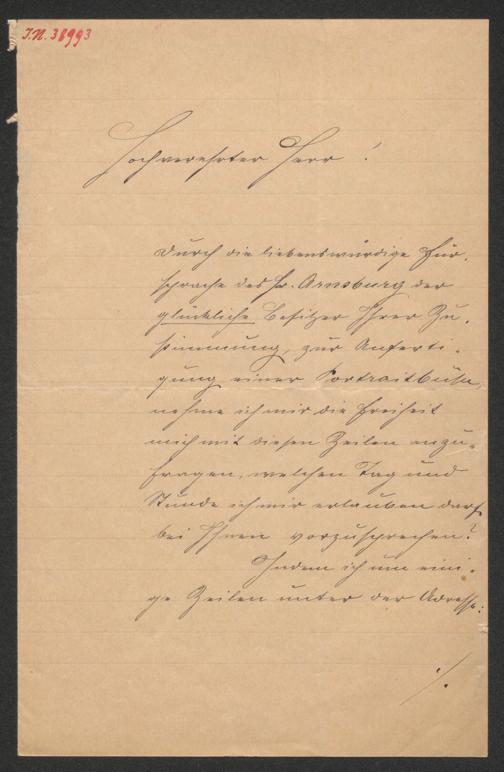 I.N. 38993
Hochverehrter Herr!
Durch die liebenswürdige Für-
sprache des Hr. Arnsburg der
glückliche Besitzer Ihrer Zu-
stimmung, zur Anferti-
gung einer Portraitbüste,
nehme ich mir die Freiheit
mich mit diesen Zeilen anzu-
fragen, welchen Tag und
Stunde ich mir erlauben darf
bei Ihnen vorzusprechen?
Indem ich um eini-
ge Zeilen unter der Adresse:
./.